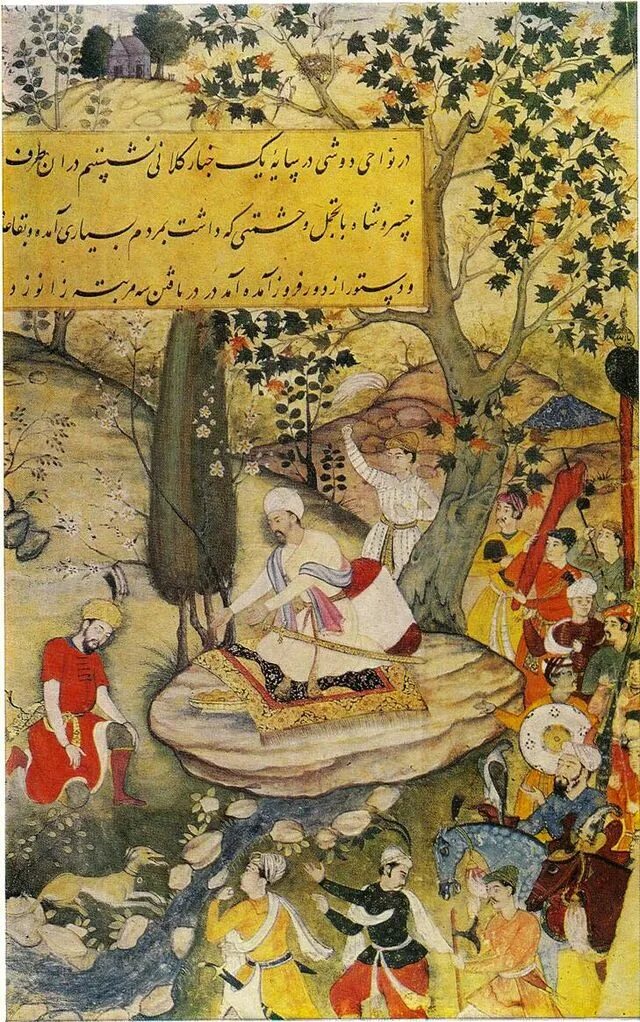 در نواحی دوشی در پایهٔ یک چنار کلانی نشستیم دران طرف
خسروشاه باتجمل و حشمتی که داشت بمردم بسیاری آمده
و دستور از دور فروز آمده آمد در دریافتن سه مرتبه زانو زد